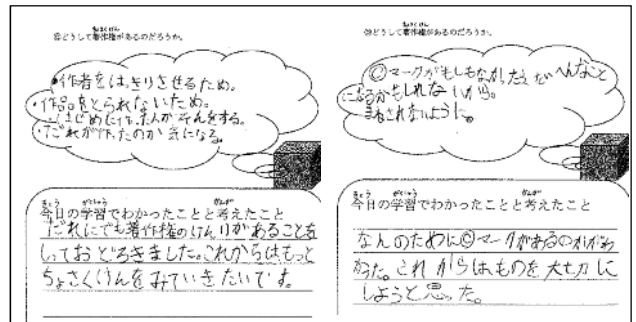 ◎どうして著作権があるのだろうか。
ちょさくけん
・作者をはっきりさせるため。
・作品をとられないため。
・はじめに作った人がそんをする。
・だれが作ったのか気になる。
きょう がくしゅう かんが
今日の学習でわかったことと考えたこと
だれにでも著作権のけんりがあることを
しっておどろきました。これからはもっと
ちょさくけんをみていきたいです。
◎どうして著作権があるのだろうか。
ちょさくけん
©マークがもしもなかったらへんなこと
になるかもしれないから。
まねされないように。
きょう がくしゅう かんが
今日の学習でわかったことと考えたこと
なんのために©マークがあるのかがわ
かった。これからは、ものを大切に
しようと思った。